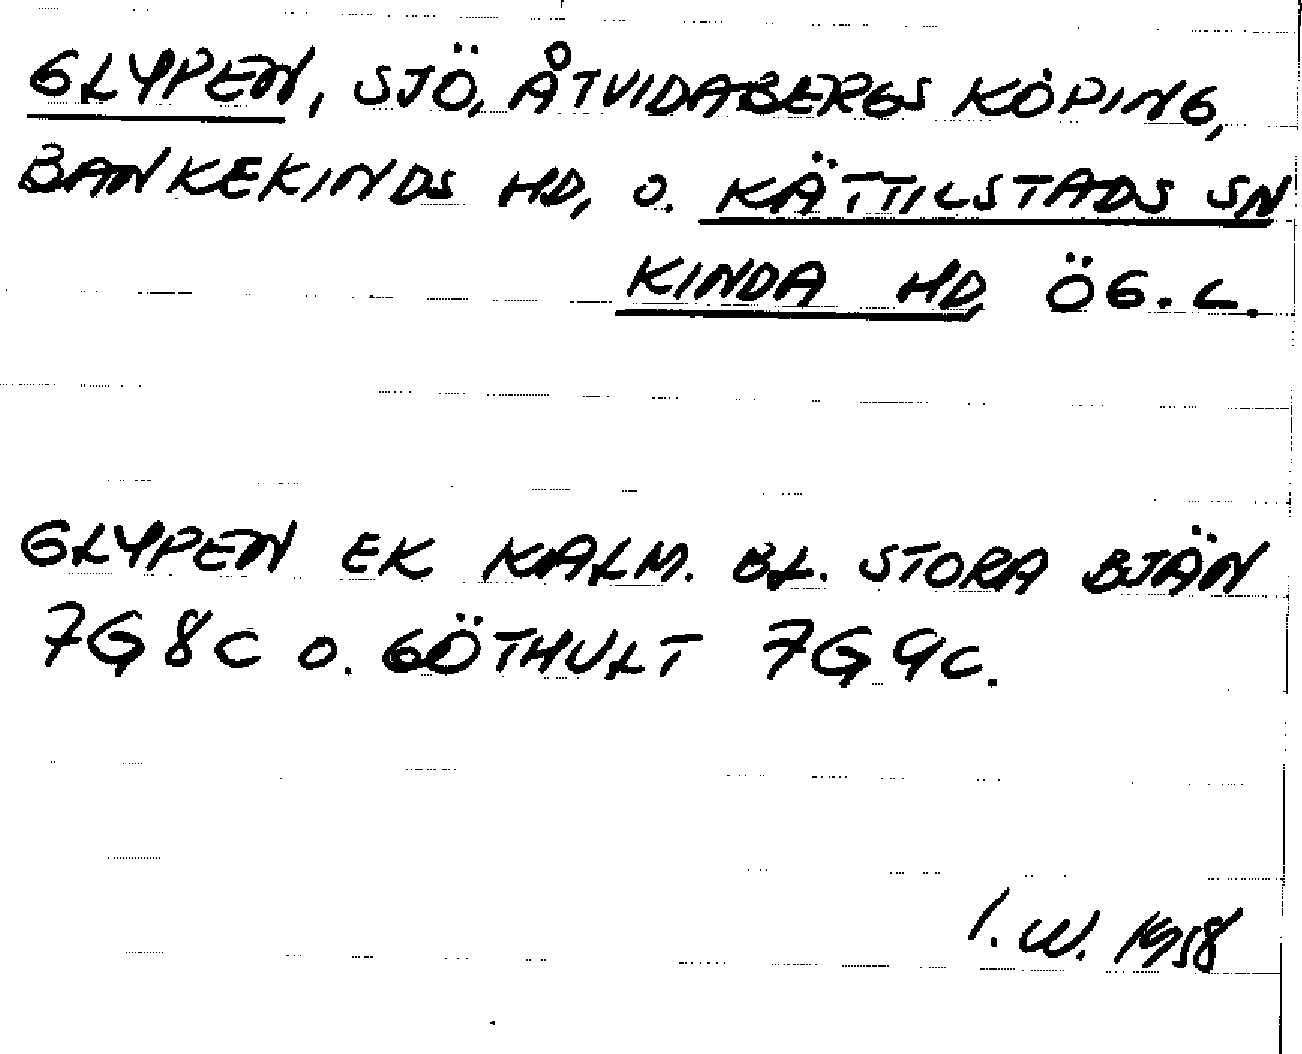 GLYPEN, SJÖ, ÅTVIDABERGS KÖPING,
BANKEKINDS HD, O. KÄTTILSTADS SN
KINDA HD ÖG. L.
GLYPEN EK KALM. BL. STORA BJÄN
7G8C O. GÖTHULT 7G9C.
I. W. 1958